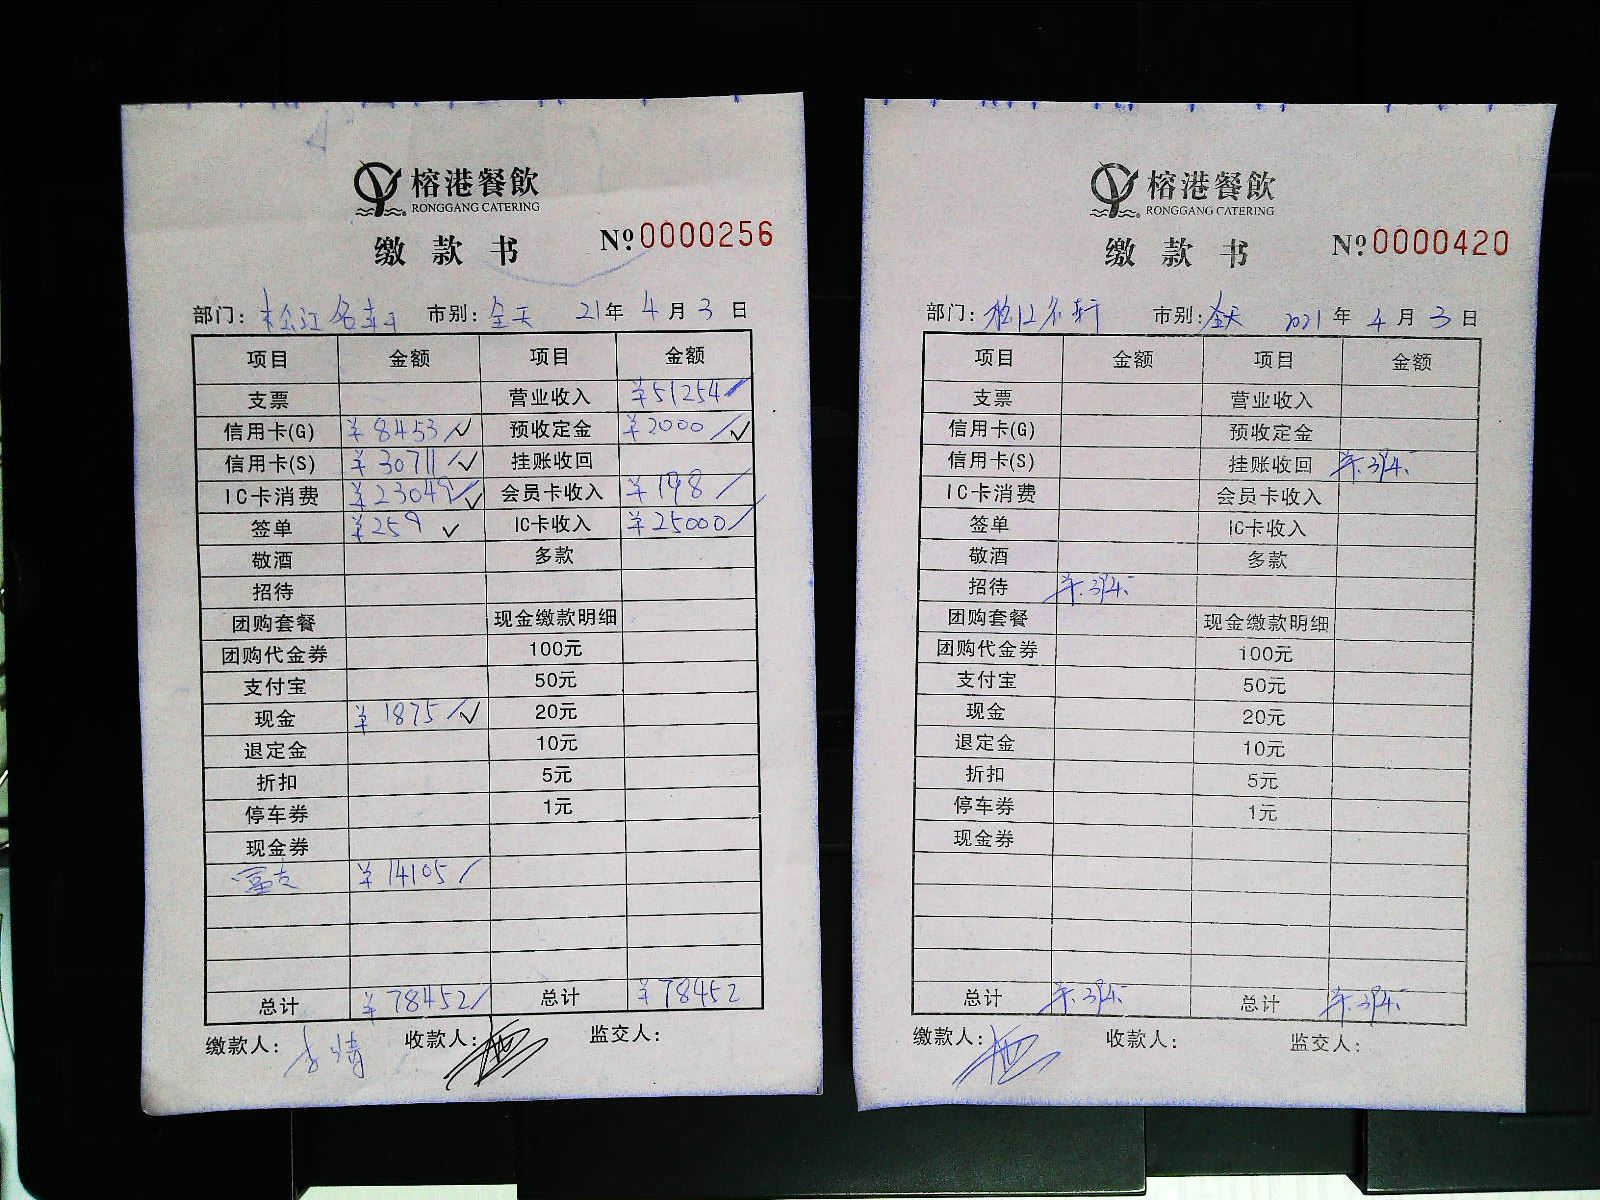 榕港餐飲
RONGGANG CATERING
缴款书 №0000256
部门：松江名轩 市别：全天 21年4月3日
项目 金额 项目 金额
支票 营业收入 ¥51254
信用卡(G) ¥8453 预收定金 ¥2000
信用卡(S) ¥30711 挂账收回
IC卡消费 ¥23049 会员卡收入 ¥198
签单 ¥259 IC卡收入 ¥25000
敬酒 多款
招待
团购套餐 现金缴款明细
团购代金券 100元
支付宝 50元
现金 ¥1875 20元
退定金 10元
折扣 5元
停车券 1元
现金券
¥14105
总计 ¥78452 总计 ¥78452
缴款人： 收款人： 监交人：
榕港餐飲
RONGGANG CATERING
缴款书 №0000420
部门：松江名轩 市别：全天 2021年4月3日
项目 金额 项目 金额
支票 营业收入
信用卡(G) 预收定金
信用卡(S) 挂账收回
IC卡消费 会员卡收入
签单 IC卡收入
敬酒 多款
招待
团购套餐 现金缴款明细
团购代金券 100元
支付宝 50元
现金 20元
退定金 10元
折扣 5元
停车券 1元
现金券
总计 总计
缴款人： 收款人： 监交人：